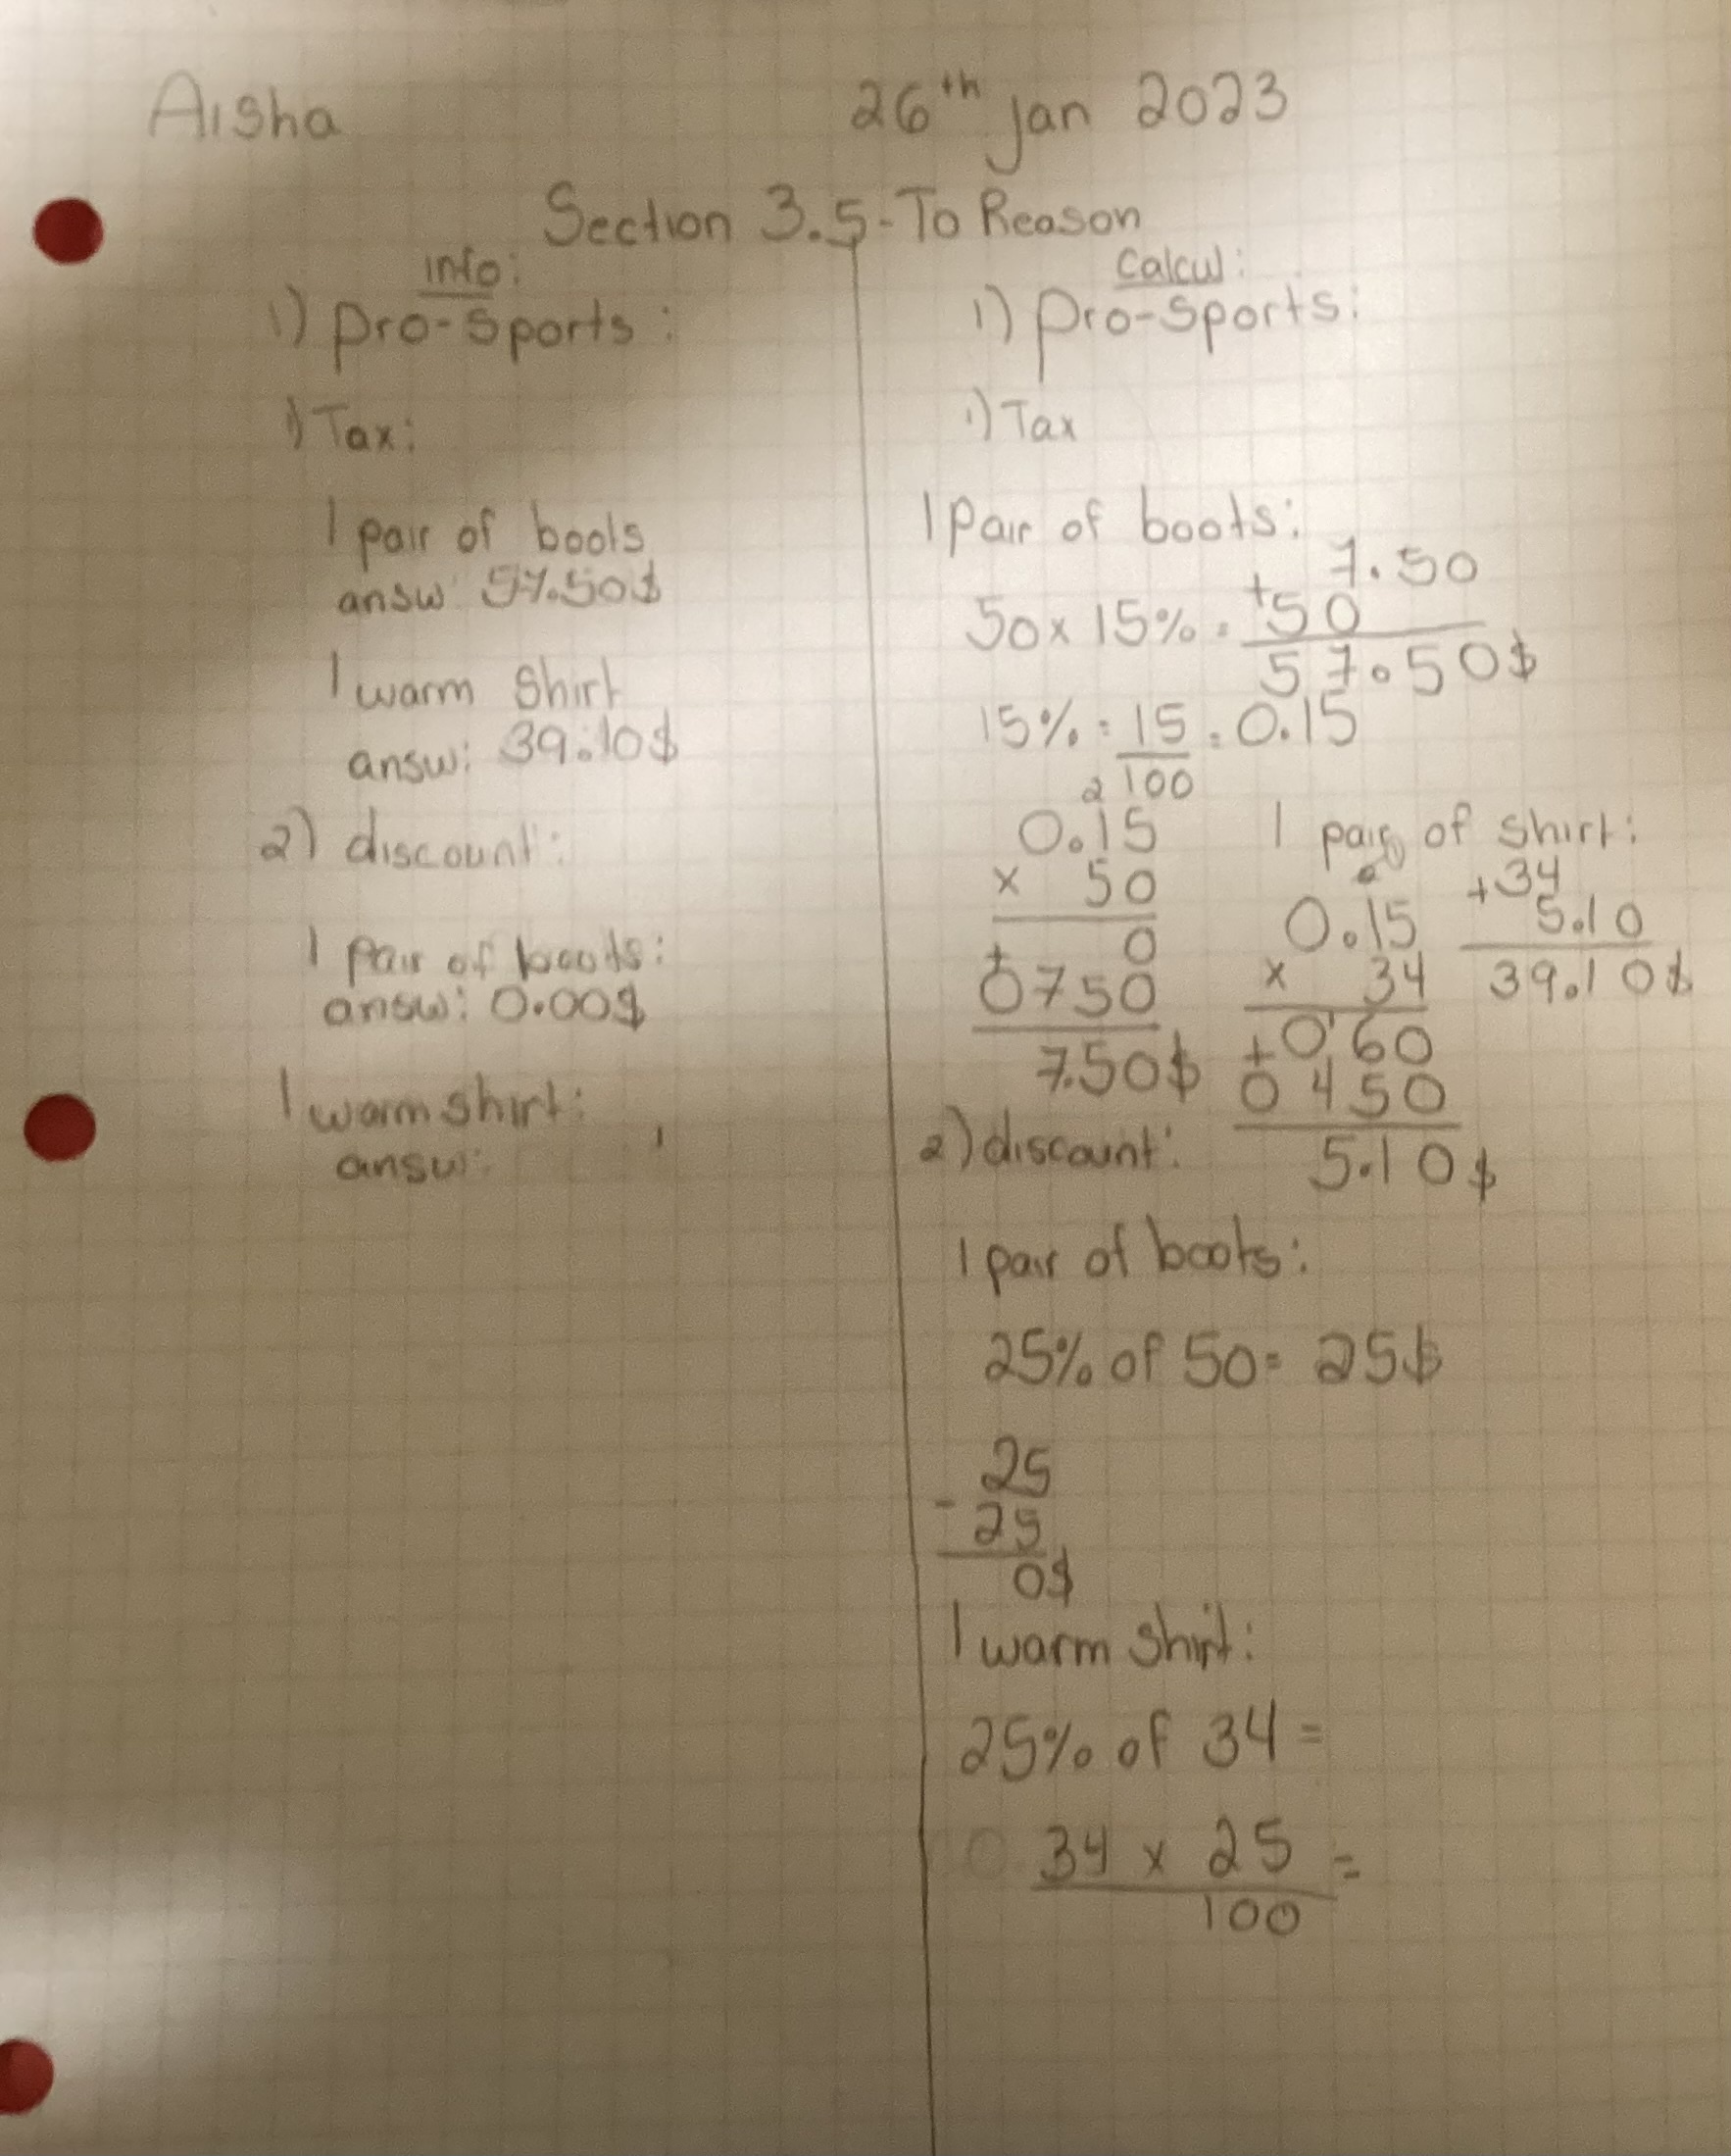 Aisha
26th jan 2023
Section 3.5 - To Reason
info:
1) pro-sports:
1) Tax:
1 pair of boots
answ: 57.50$
1 warm shirt
answ: 39.10$
2) discount:
1 pair of boots:
answ: 0.00$
1 warm shirt:
answ:
Calcul:
1) pro-sports:
1) Tax
1 pair of boots:
7.50
+
50 x 15% = 50
57.50$
15% = 15 = 0.15
100
2
0.15
x 50
0
+
0750
7.50$
1 pair of shirt:
2
0.15
x 34
1
+ 0 60
0 450
5.10$
+34
5.10
39.10$
2) discount:
1 pair of boots:
25% of 50 = 25$
25
- 25
0$
1 warm shirt:
25% of 34 =
34 x 25 =
100